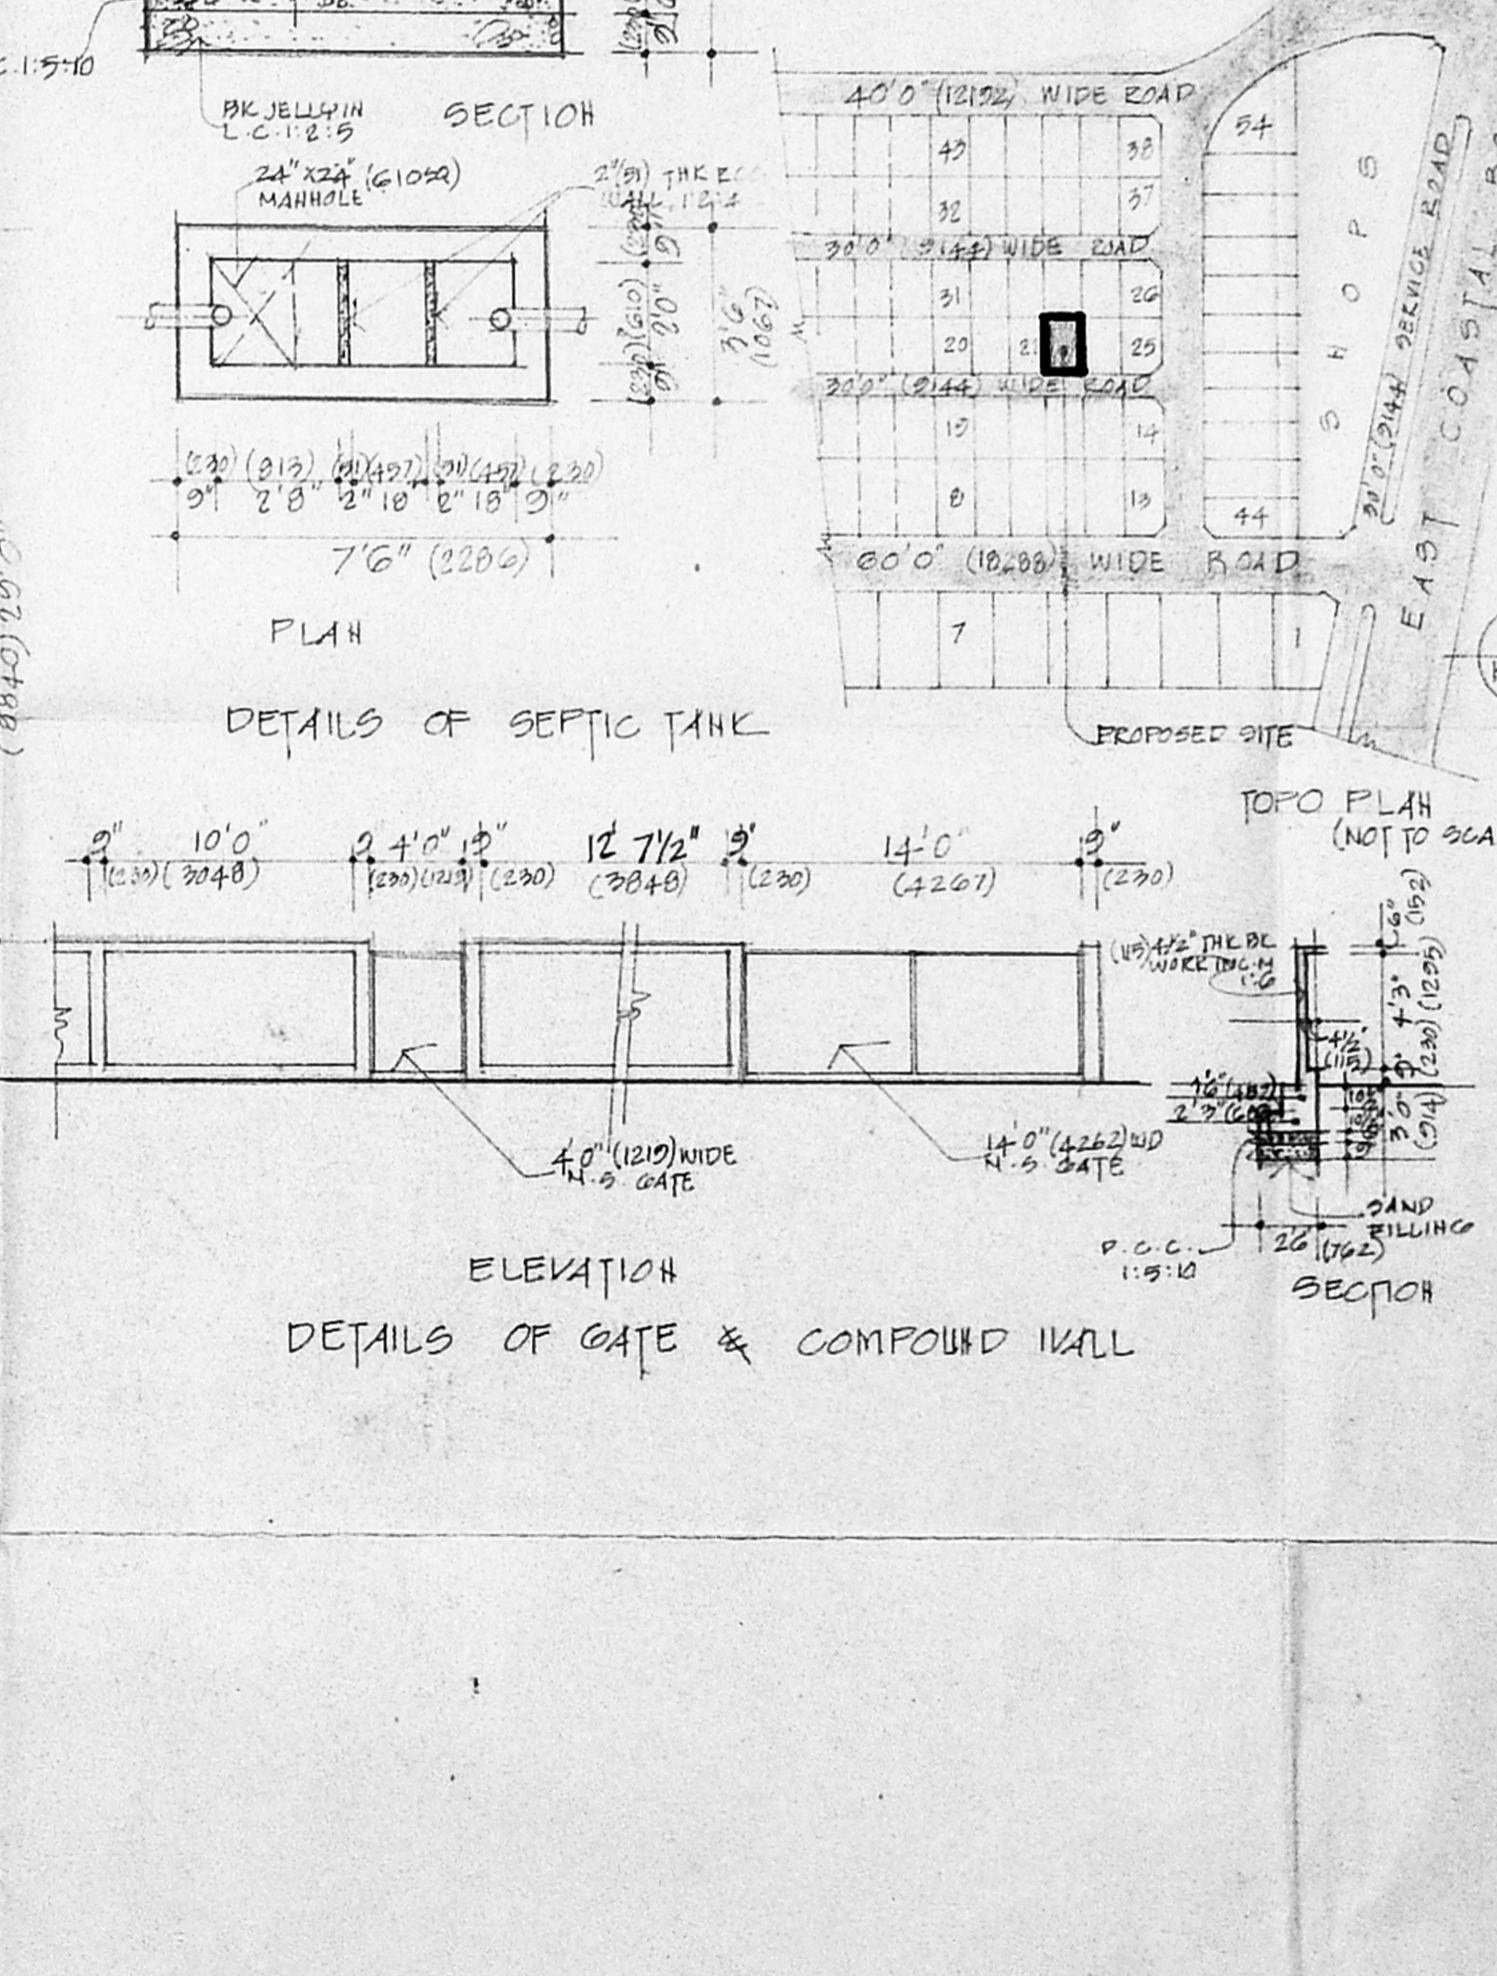 C.1:5:10
BK JELLY IN
L.C. 1:2:5
SECTION
24" X 24" (610SQ)
MANHOLE
2" (51) THK
WALL, 1:2:4
(230) (813) (51) (457) (51) (457) (230)
9" 2'8" 2" 18" 2" 18" 9"
7'6" (2286)
2'0"
(610)
3'6"
PLAN
DETAILS OF SEPTIC TANK
40'0" (12192) WIDE ROAD
43 38
32 37
30'0" (9144) WIDE ROAD
31 26
20 21 25
30'0" (9144) WIDE ROAD
19 14
8 13
60'0" (18288) WIDE ROAD
7 1
54
44
SHOPS
30'0" (9144) SERVICE ROAD
EAST COASTAL
PROPOSED SITE
TOPO PLAN
(NOT TO SCA
9" 10'0" 9 4'0" 9" 12' 7 1/2" 9" 14'-0" 9"
(230) (3048) (230) (1219) (230) (3848) (230) (4267) (230)
4'0" (1219) WIDE
M.S. GATE
14'0" (4262) WD
M.S. GATE
ELEVATION
DETAILS OF GATE & COMPOUND WALL
(115) 4 1/2" THK BK
WORK IN C.M
1:6
4 1/2"
(115)
1'6" (457)
6" (152)
4'3" (1295)
9" (230)
3'0" (914)
SAND
FILLING
2'6" (762)
P.C.C.
1:5:10
SECTION